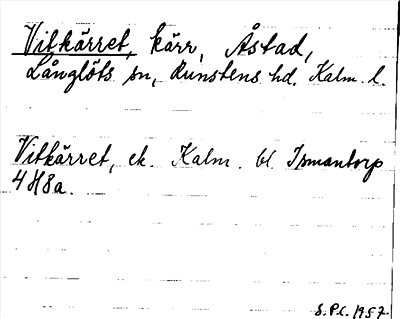 Vitkärret, kärr, Åstad,
Långlöts sn, Runstens hd. Kalm. l.
Vitkärret, ek. Kalm. bl Ismantorp
4H8a.
S.Pl. 1957